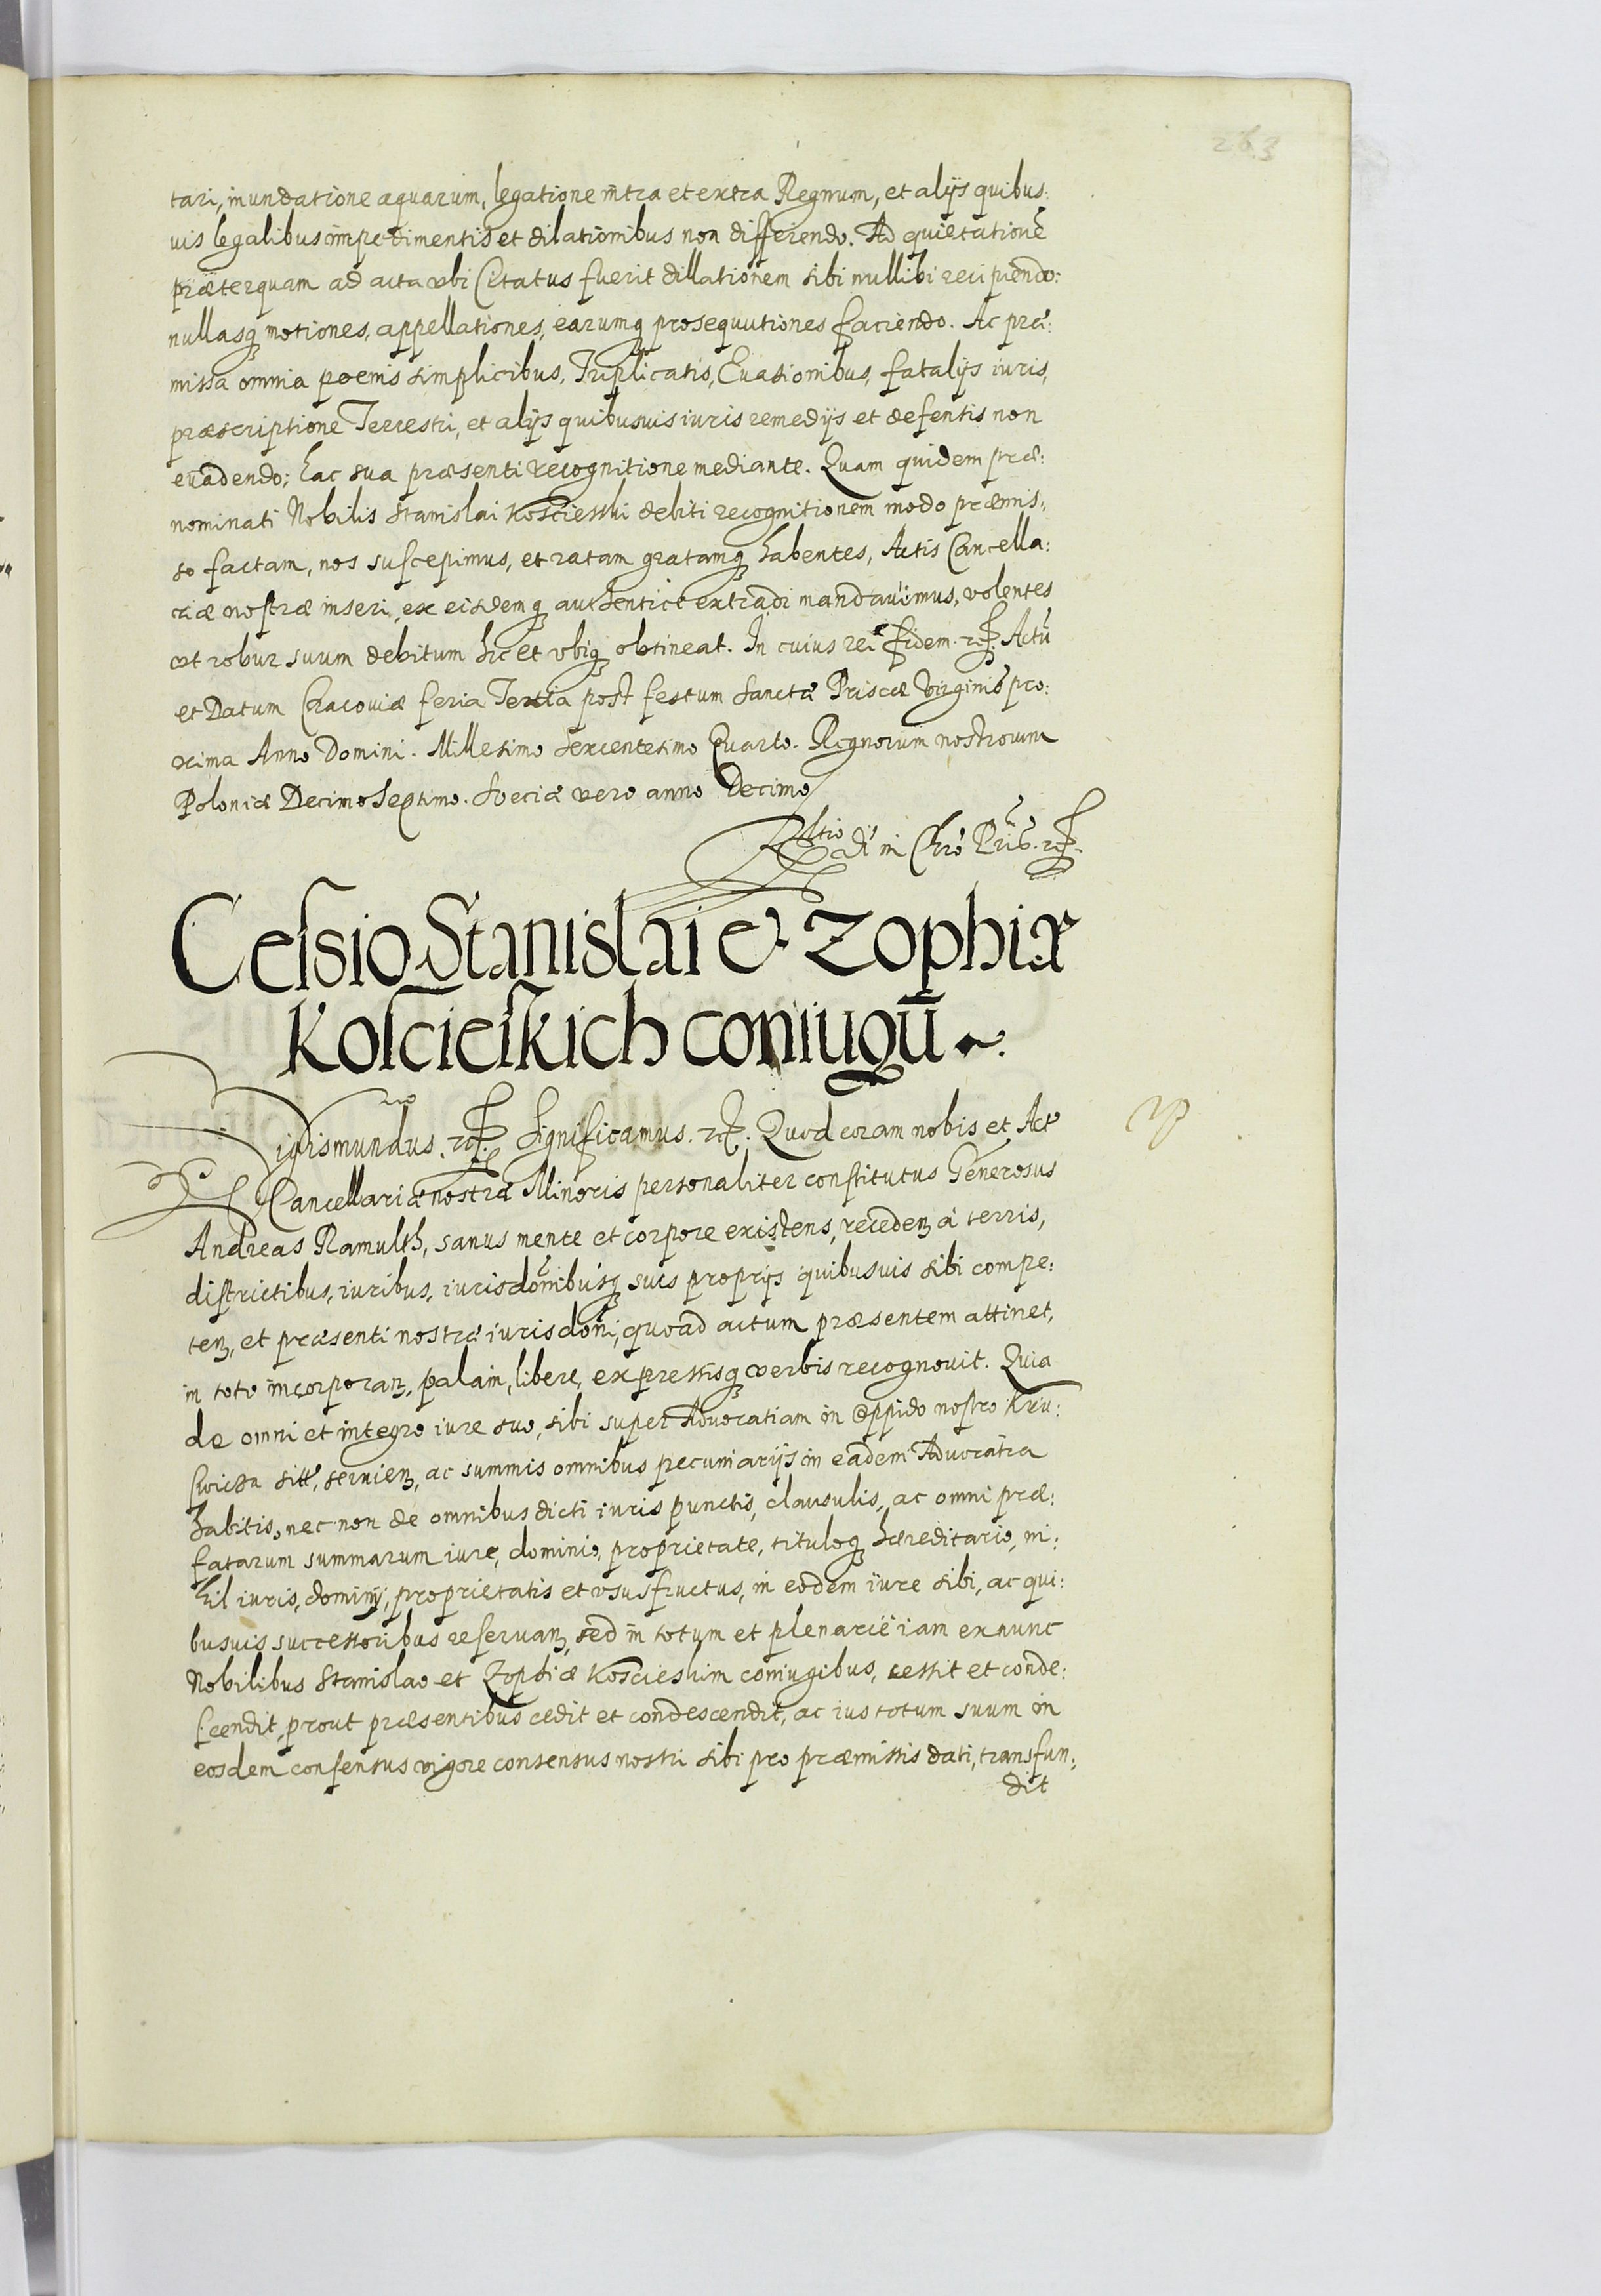 263
tari, inundatione aquarum, legatione intra et extra Regnum, et alijs quibus:
uis legalibus impedimentis et dilationibus non differendo. Ad quietationē
præterquam ad acta vbi Citatus fuerit dillationem sibi nullibi recipiendo:
nullasq motiones, appellationes, earumq prosequutiones faciendo. Ac præ:
missa omnia poenis simplicibus, Triplicatis, Euasionibus, fatalijs iuris,
præscriptione Terrestri, et alijs quibusuis iuris remedijs et defensis non
euadendo; hac sua præsenti recognitione mediante. Quam quidem præ:
nominati Nobilis Stanislai Koscieski debiti recognitionem modo præmis:
so factam, nos suscepimus, et ratam gratamq habentes, Actis Cancella:
riæ nostræ inseri, ex eisdemq authentice extradi mandauimus, volentes
vt robur suum debitum hic et vbiq obtineat. In cuius rei fidem. etc. Actū
et Datum Cracouiæ feria Tertia post festum Sanctæ Priscæ Virginis pro:
xima Anno Domini. Millesimo Sexcentesimo Quarto. Regnorum nostrorum
Poloniæ Decimo Septimo. Sveciæ vero anno Decimo
Rltio adi in Chro Pris. etc.
Cessio Stanislai et Zophiæ
Koscieskich coniugū
Sigismundus. etc. Significamus. etc. Quod coram nobis et Act
Cancellariæ nostræ Minoris personaliter constitutus Generosus
Andreas Ramulth, sanus mente et corpore existens, recedenȝ à terris,
districtibus, iuribus, iurisdōnibusq suis proprijs quibusuis sibi compe:
tenȝ, et præsenti nostræ iurisdōni, quoad actum præsentem attinet,
in toto incorporanȝ, palam, libere, expressisq verbis recognouit. Quia
de omni et integro iure suo, sibi super Aduocatiam in Oppido nostro Kru:
swicza sitt, seruienȝ, ac summis omnibus pecuniarijs in eadem Aduocatia
habitis, nec non de omnibus dicti iuris punctis, clausulis, ac omni præ:
fatarum summarum iure, dominio, proprietate, tituloq hæreditario, ni:
hil iuris, dominij, proprietatis et vsusfructus, in eodem iure sibi, ac qui:
busuis successoribus reseruanȝ, sed in totum et plenarie iam ex nunc
Nobilibus Stanislao et Zophiæ Koscieskim coniugibus, cessit et conde:
scendit, prout præsentibus cedit et condescendit, ac ius totum suum in
eosdem consensus vigore consensus nostri sibi pro præmissis dati, transfun:
dit